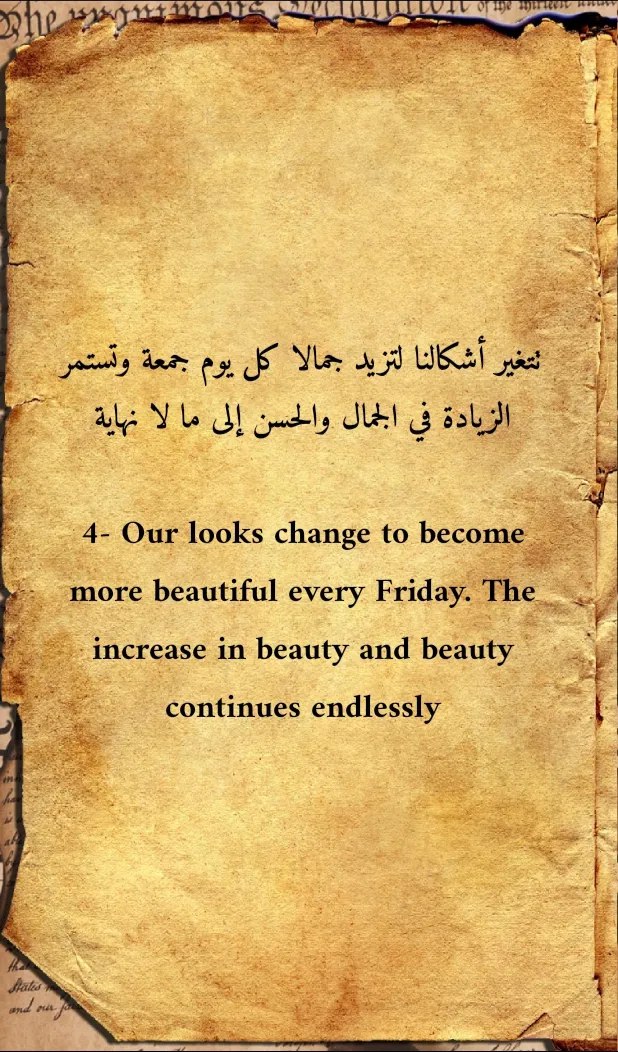 The unanimous Declaration of the thirteen united
تتغير أشكالنا لتزيد جمالا كل يوم جمعة وتستمر
الزيادة في الجمال والحسن إلى ما لا نهاية
4- Our looks change to become
more beautiful every Friday. The
increase in beauty and beauty
continues endlessly
States
and our